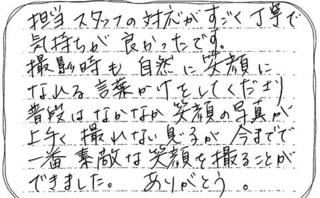 担当スタッフの対応がすごく丁寧で
気持ちが良かったです。
撮影時も自然に笑顔に
なれる言葉がけをしてくださり
普段はなかなか笑顔の写真が
上手く撮れない息子が今までで
一番素敵な笑顔を撮ることが
できました。ありがとう。